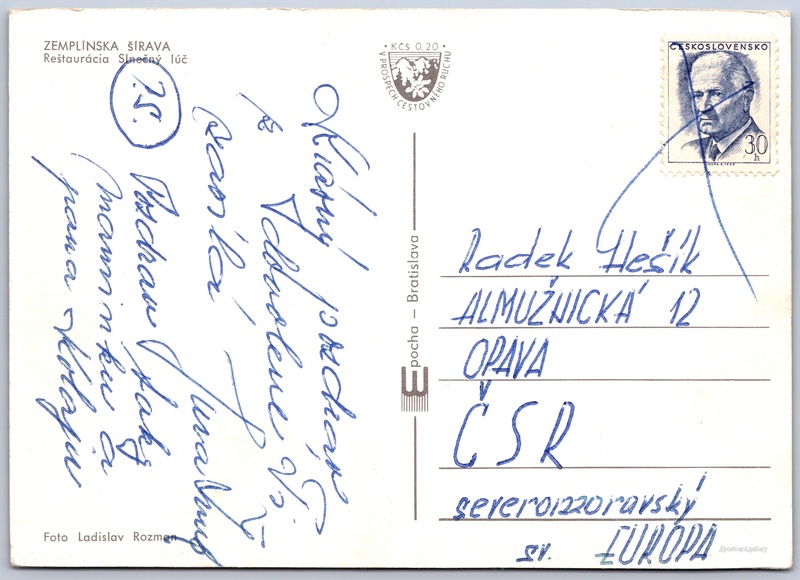 ZEMPLÍNSKA ŠÍRAVA
Reštaurácia Slnečný lúč
Kčs 0.20
V PROSPECH CESTOVNÉHO RUCHU
ČESKOSLOVENSKO
30
h
Krásný pozdrav
z dovolené Ti
zasílá
P.S.
Pozdrav také
maminku a
pana
Epocha – Bratislava
Radek Hešík
ALMUŽNICKÁ 12
OPAVA
ČSR
severomoravský
EUROPA
Foto Ladislav Rozman